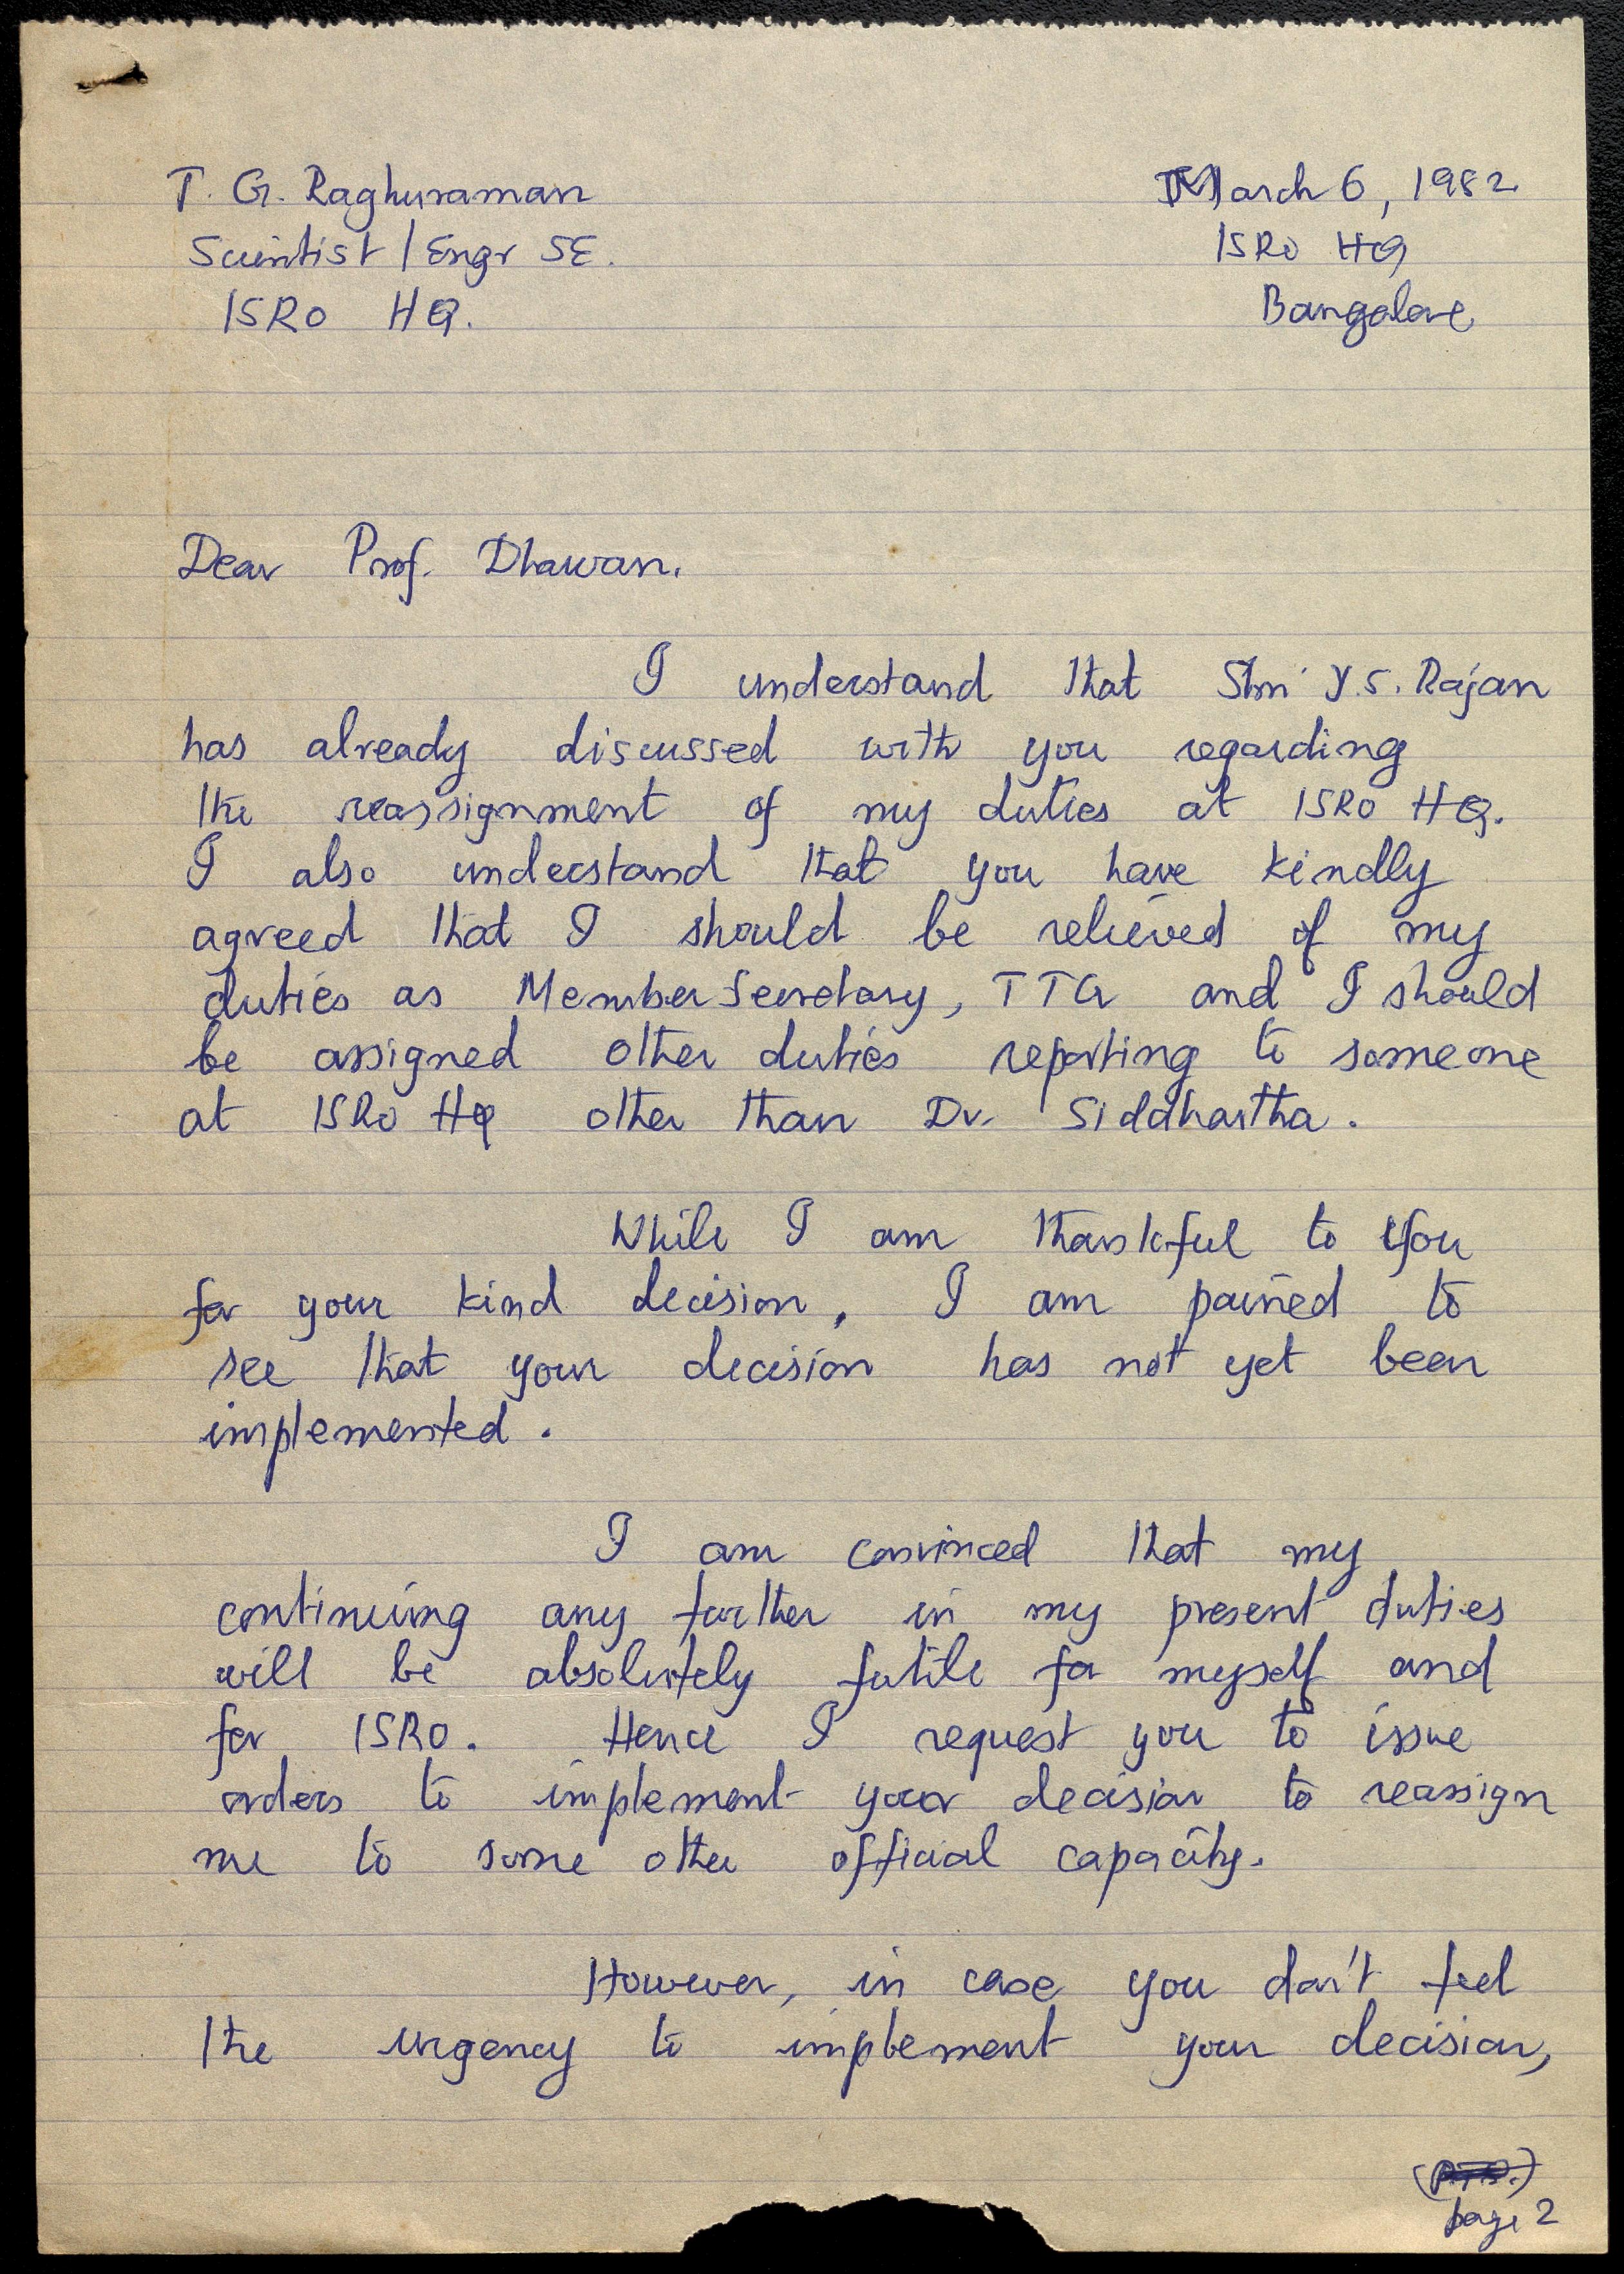 T. G. Raghuraman
Scientist / Engr SE.
ISRO HQ.
March 6, 1982
ISRO HQ
Bangalore
Dear Prof. Dhawan.
I understand that Shri Y.S. Rajan
has already discussed with you regarding
the reassignment of my duties at ISRO HQ.
I also understand that you have kindly
agreed that I should be relieved of my
duties as Member Secretary, TTG and I should
be assigned other duties reporting to someone
at ISRO HQ other than Dr. Siddhartha.
While I am thankful to you
for your kind decision, I am pained to
see that your decision has not yet been
implemented.
I am convinced that my
continuing any further in my present duties
will be absolutely futile for myself and
for ISRO. Hence I request you to issue
orders to implement your decision to reassign
me to some other official capacity.
However, in case you don't feel
the urgency to implement your decision,
(P.T.O.)
page 2